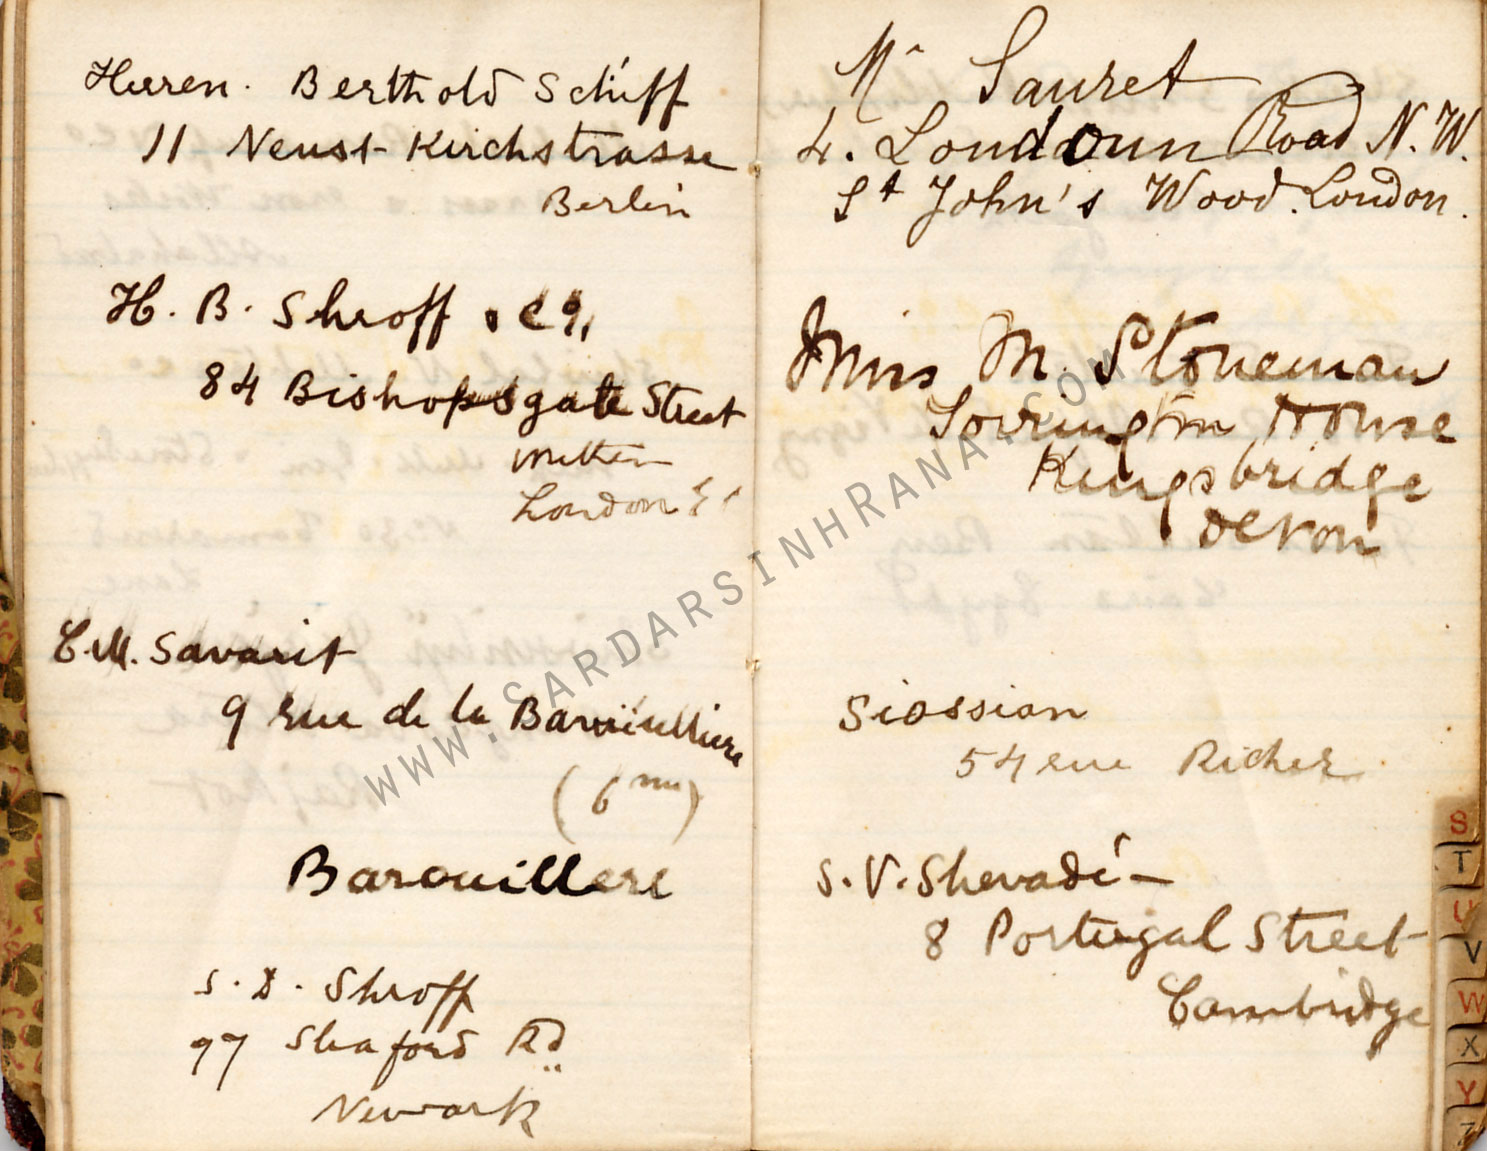 Herren. Berthold Schiff
11 Neust Kirchstrasse
Berlin
H. B. Shroff & Co,
84 Bishopsgate Street
Within
London E C
C. M. Savarit
9 rue de la
(6me)
Barouillere
S. D. Shroff
97 Seaford Rd.
Newark
Mr Sauret
4. Loudoun Road N.W.
St John's Wood. London.
Miss M. Stoneman
House
Kingsbridge
Devon
Siossian
54 rue Richer
S. V. Shevadé -
8 Portugal Street
Cambridge
S
T
U
V
W
X
Y
Z
WWW.SARDARSINHRANA.COM